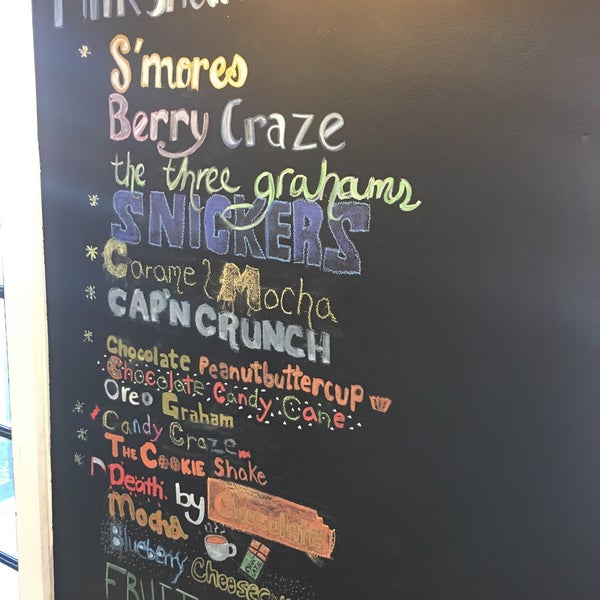 S'mores
Berry Craze
the three grahams
SNICKERS
Caramel Mocha
CAP'N CRUNCH
Chocolate Peanutbuttercup
Chocolate Candy Cane
Oreo Graham
Candy Craze
THE COOKIE SHAKE
Death by Chocolate
Mocha
Blueberry